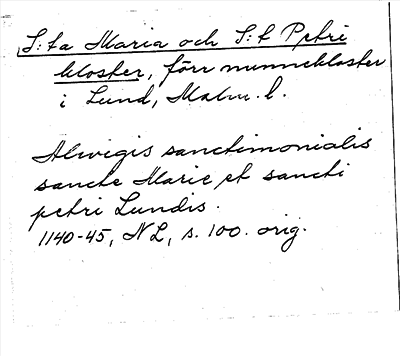 S:ta Maria och S:t Petri
kloster, förr nunnekloster
i Lund, Malm. l.
Alwigis sanctimonialis
sancte Marie et sancti
petri Lundis.
1140-45, NL, s. 100. orig.